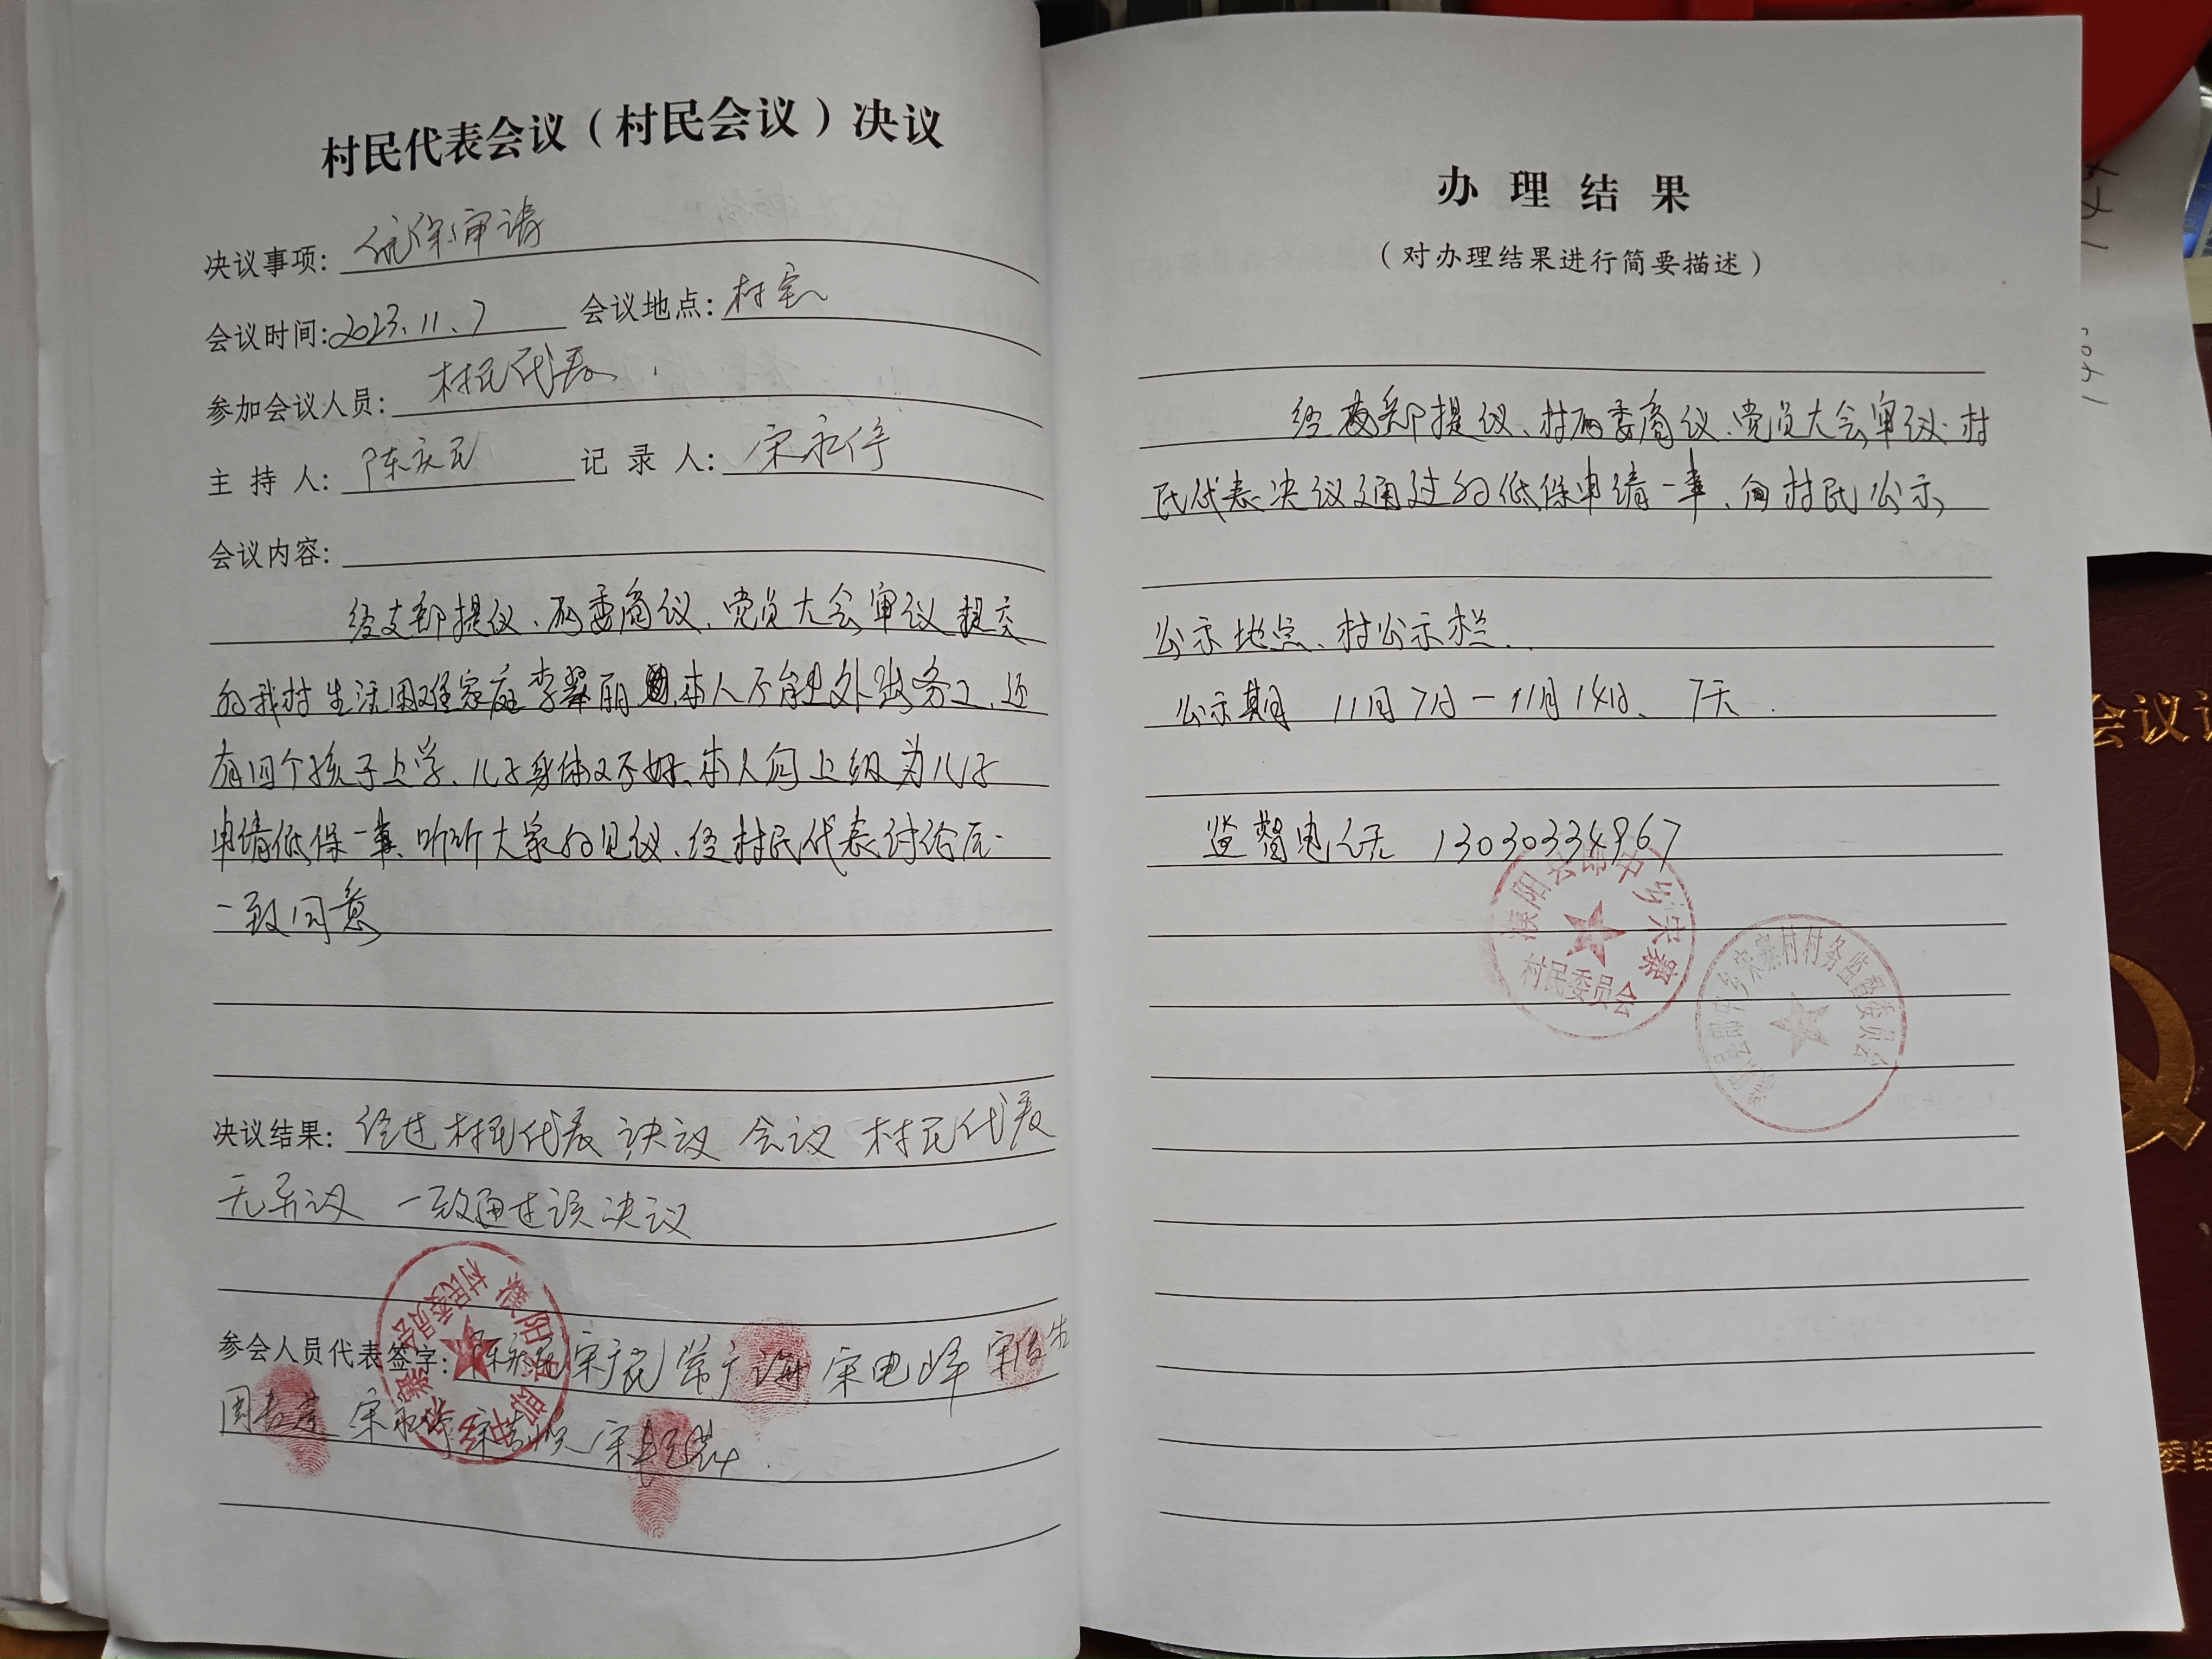 村民代表会议（村民会议）决议
决议事项：低保申请
会议时间：2023.11.7 会议地点：村室
参加会议人员：村民代表.
主持人：陈庆民 记录人：宋永停
会议内容：
经支部提议、两委商议、党员大会审议提交
的我村生活困难家庭李翠丽 本人不能出外出务工、还
有四个孩子上学、儿子身体又不好、本人向上级为儿子
申请低保一事、听听大家的见议、经村民代表讨论后
一致同意
决议结果：经过村民代表决议会议 村民代表
无异议 一致通过该决议
参会人员代表签字：陈庆民 常广海 宋电峰
宋永停
濮阳县郎中乡宋寨
村民委员会
办理结果
（对办理结果进行简要描述）
经支部提议、村两委商议、党员大会审议、村
民代表决议通过的低保申请一事、向村民公示
公示地点、村公示栏..
公示期 11月7日－11月14日、7天.
监督电话 13030334967
濮阳县郎中乡宋寨
村民委员会
濮阳县郎中乡宋寨村村务监督委员会
会议